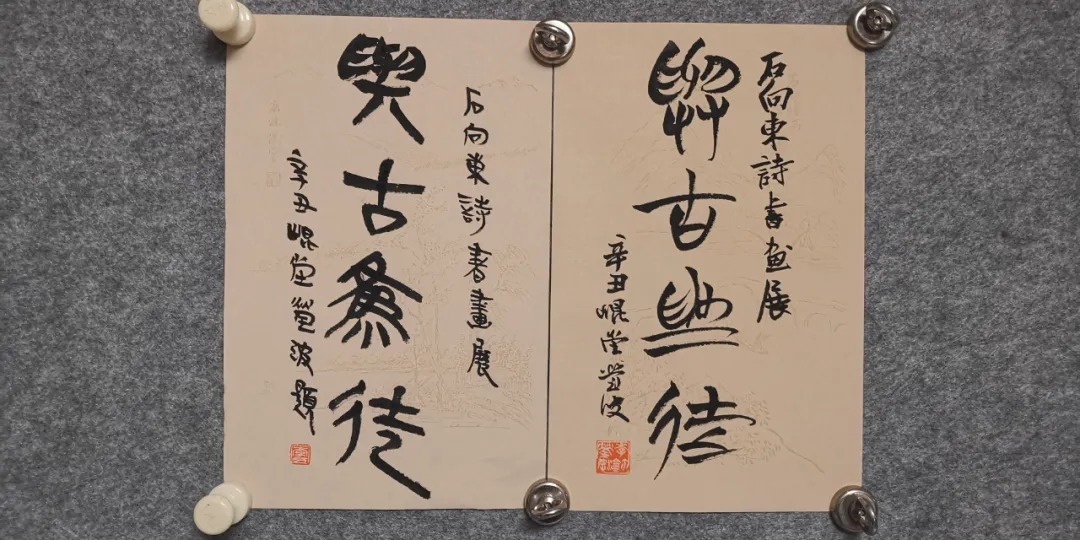 石向東詩書画展
與古為徒
辛丑崐堂波
石向東詩書畫展
與古為徒
辛丑崐堂波題